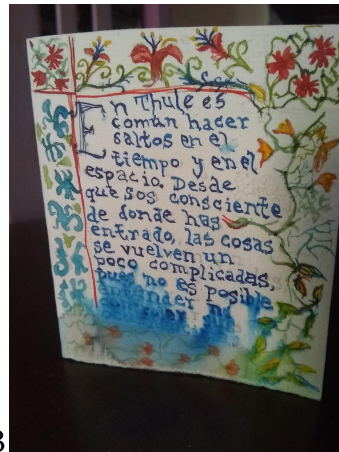 En Thule es
común hacer
saltos en el
tiempo y en el
espacio. Desde
que sos consciente
de donde has
entrado, las cosas
se vuelven un
poco complicadas,
pues no es posible
entender
3